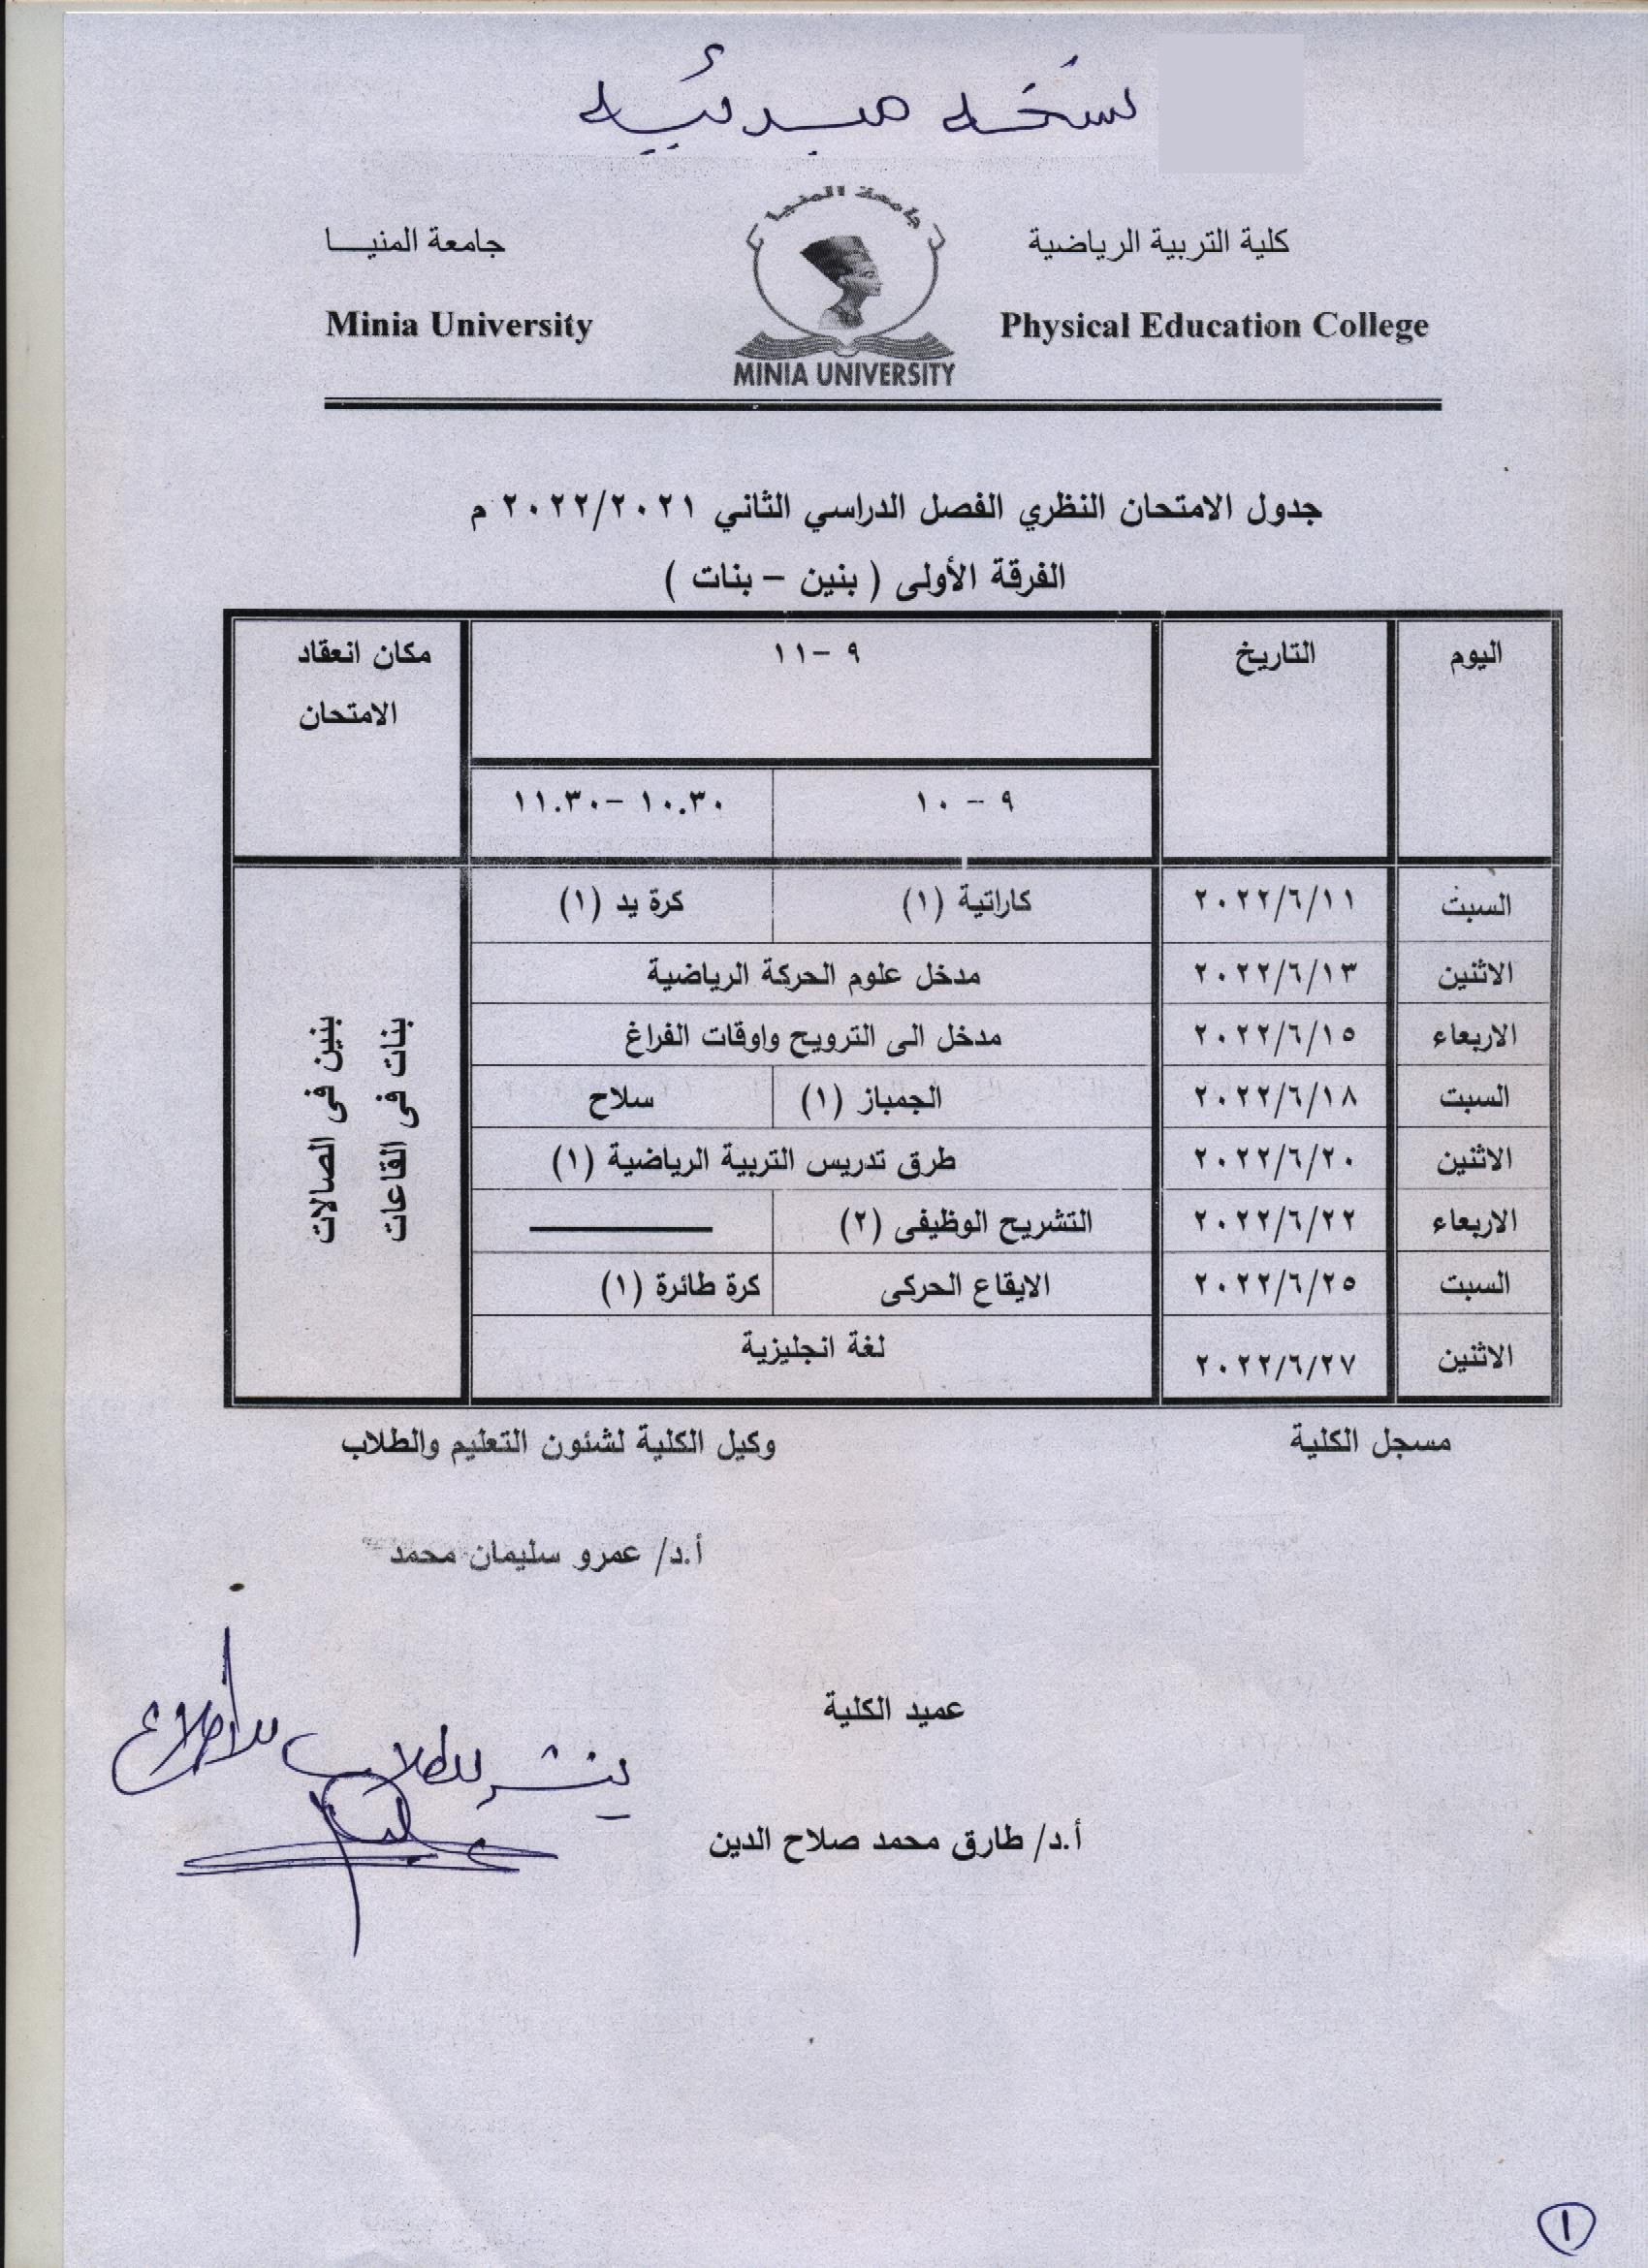 نسخه مبدئيه
جامعة المنيا
كلية التربية الرياضية
جامعة المنيـــا
Physical Education College
Minia University
MINIA UNIVERSITY
جدول الامتحان النظري الفصل الدراسي الثاني ٢٠٢٢/٢٠٢١ م
الفرقة الأولى ( بنين – بنات )
اليوم التاريخ ٩ –١١ مكان انعقاد
الامتحان
٩ – ١٠ ١٠.٣٠ –١١.٣٠
السبت ٢٠٢٢/٦/١١ كاراتية (١) كرة يد (١)
الاثنين ٢٠٢٢/٦/١٣ مدخل علوم الحركة الرياضية
الاربعاء ٢٠٢٢/٦/١٥ مدخل الى الترويح واوقات الفراغ
السبت ٢٠٢٢/٦/١٨ الجمباز (١) سلاح
الاثنين ٢٠٢٢/٦/٢٠ طرق تدريس التربية الرياضية (١)
الاربعاء ٢٠٢٢/٦/٢٢ التشريح الوظيفى (٢)
السبت ٢٠٢٢/٦/٢٥ الايقاع الحركى كرة طائرة (١)
الاثنين ٢٠٢٢/٦/٢٧ لغة انجليزية
بنين فى الصالات
بنات فى القاعات
مسجل الكلية وكيل الكلية لشئون التعليم والطلاب
أ.د/ عمرو سليمان محمد
عميد الكلية
ينشر للطلاب للأطلاع
أ.د/ طارق محمد صلاح الدين
١